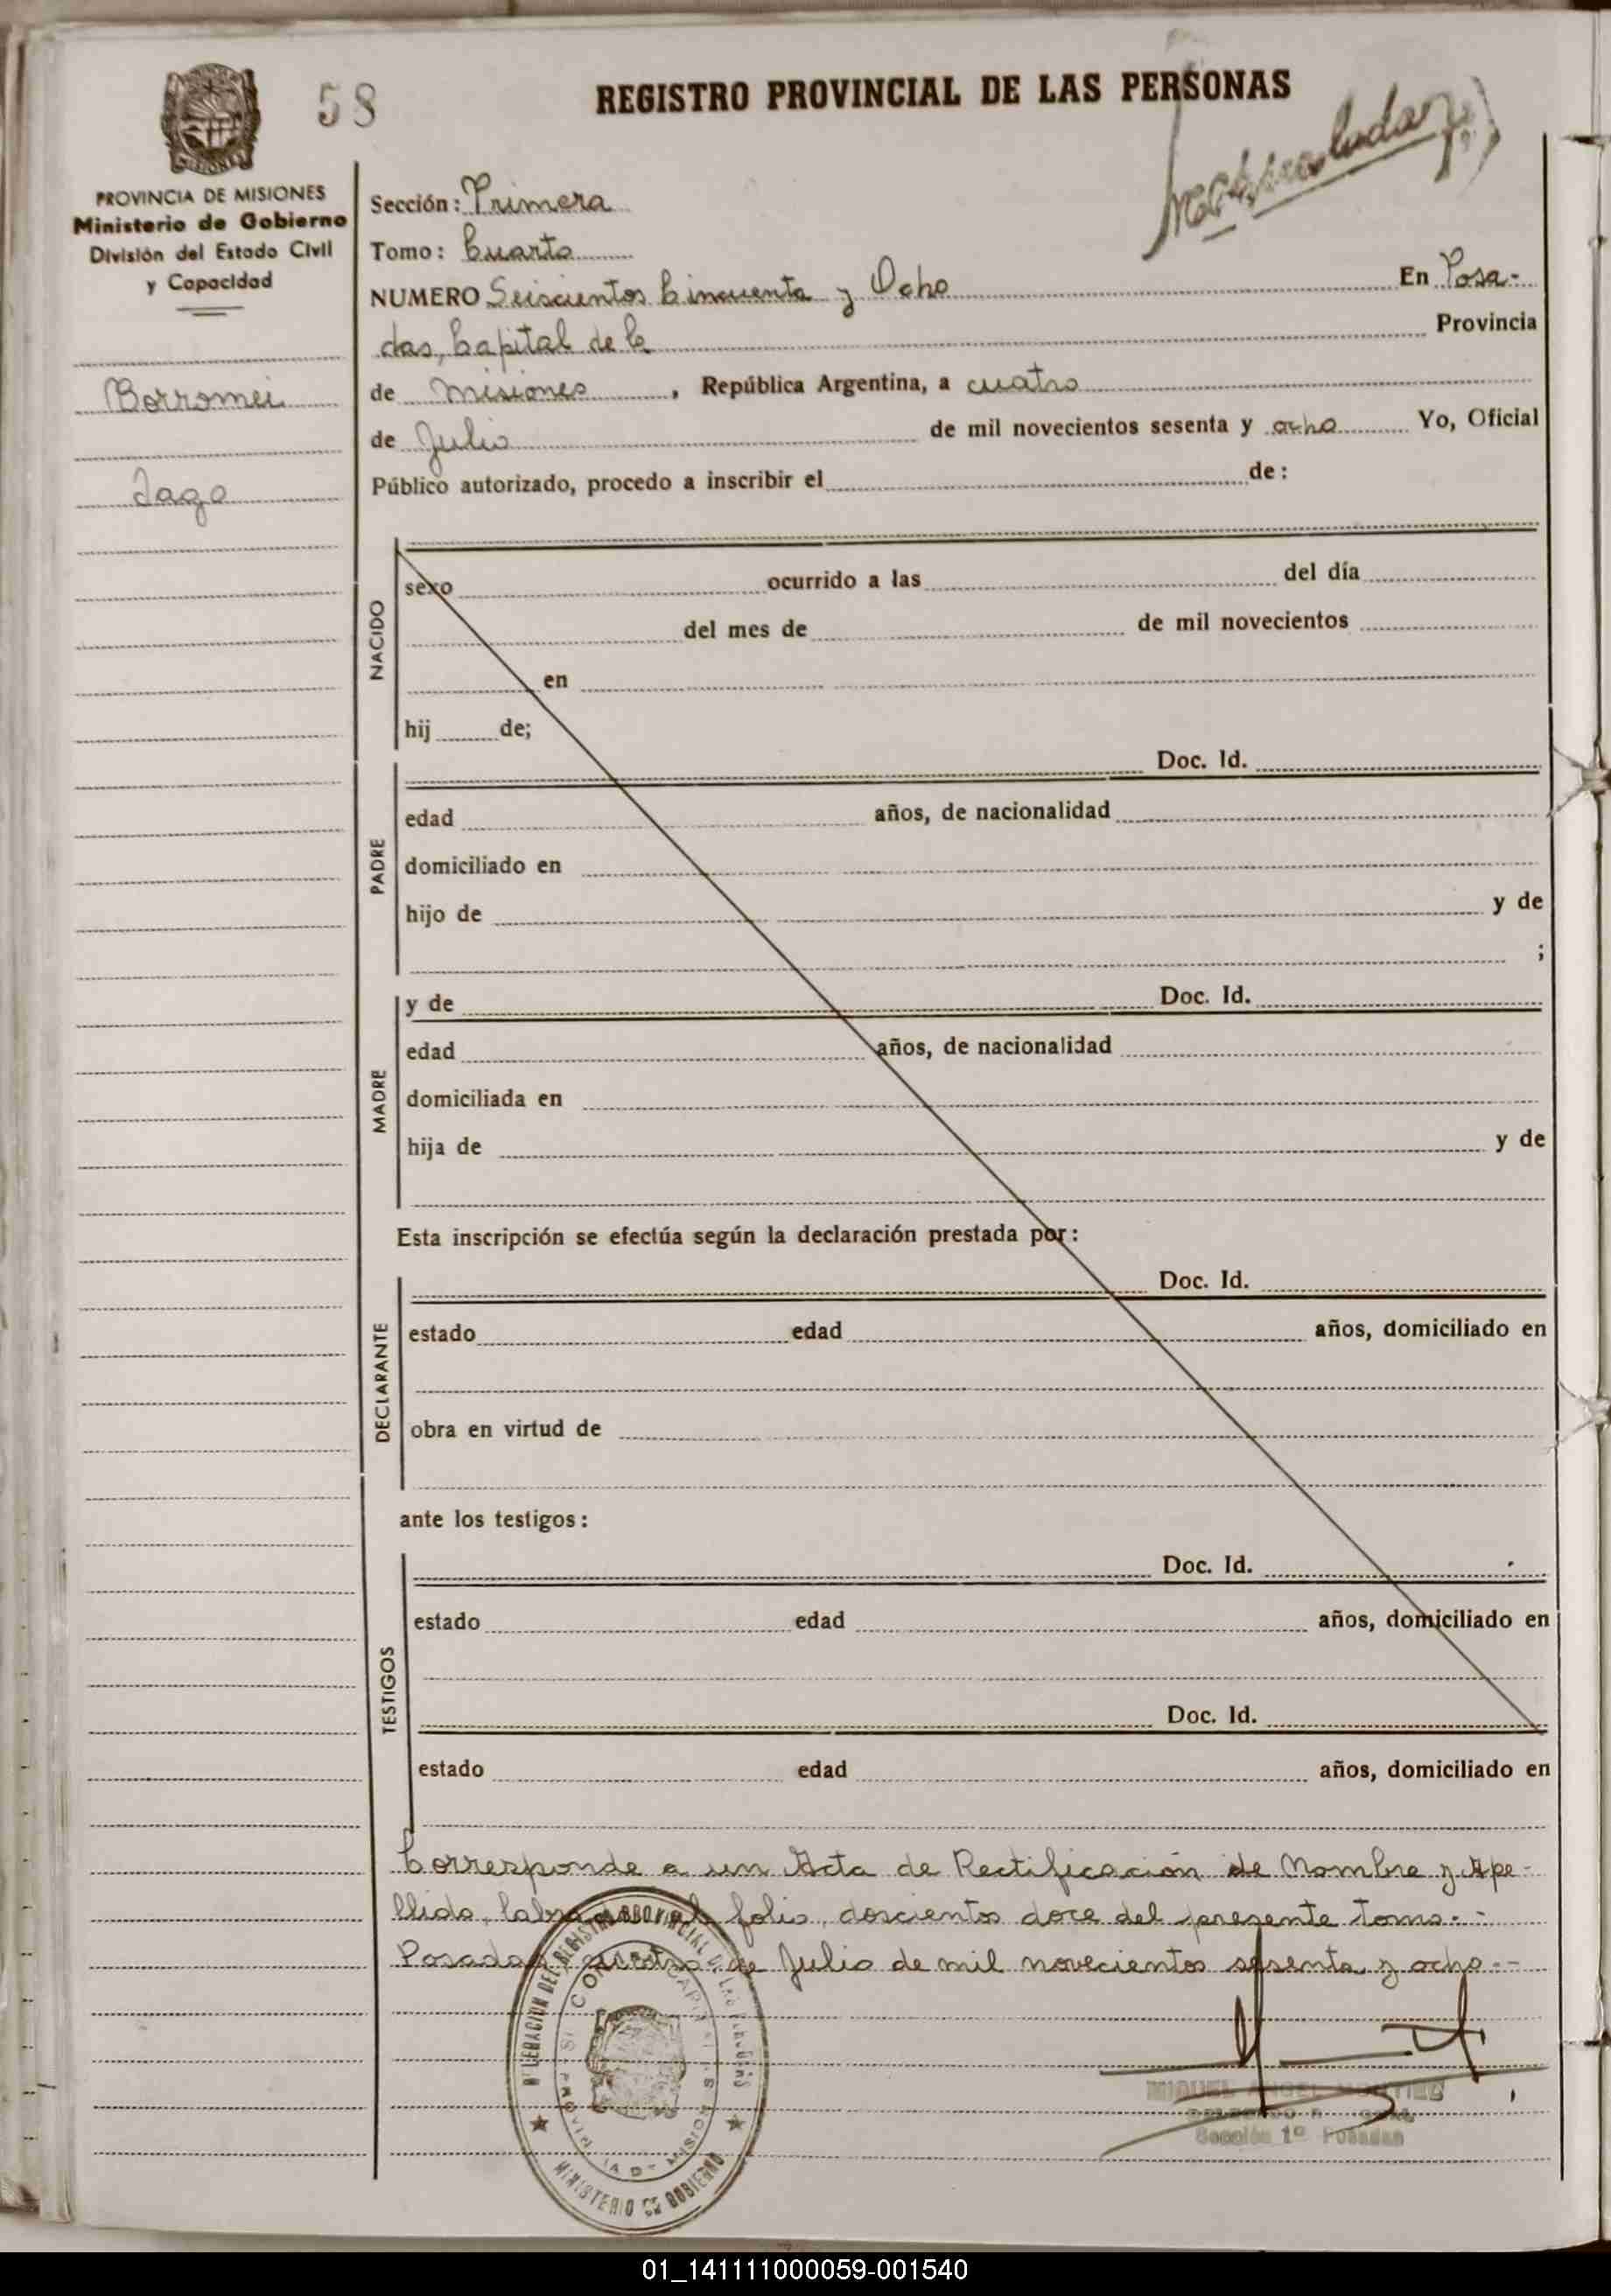 58
REGISTRO PROVINCIAL DE LAS PERSONAS
MISIONES
PROVINCIA DE MISIONES
Ministerio de Gobierno
División del Estado Civil
y Capacidad
Borromei
Iago
Sección: Primera
Tomo: Cuarto
NUMERO Seiscientos Cincuenta y Ocho En Posa-
das, Capital de la Provincia
de Misiones, República Argentina, a cuatro
de Julio de mil novecientos sesenta y ocho Yo, Oficial
Público autorizado, procedo a inscribir el de:
NACIDO
sexo ocurrido a las del día
del mes de de mil novecientos
en
hij de;
PADRE
Doc. Id.
edad años, de nacionalidad
domiciliado en
hijo de y de
;
MADRE
y de Doc. Id.
edad años, de nacionalidad
domiciliada en
hija de y de
Esta inscripción se efectúa según la declaración prestada por:
DECLARANTE
Doc. Id.
estado edad años, domiciliado en
obra en virtud de
ante los testigos:
TESTIGOS
Doc. Id.
estado edad años, domiciliado en
Doc. Id.
estado edad años, domiciliado en
Corresponde a un Acta de Rectificación de Nombre y Ape-
llido, folio, doscientos doce del presente tomo.-
Posadas, cuatro de Julio de mil novecientos sesenta y ocho.-
MINISTERIO DE GOBIERNO
MIGUEL ANGEL
Sección 1º Posadas
01_141111000059-001540